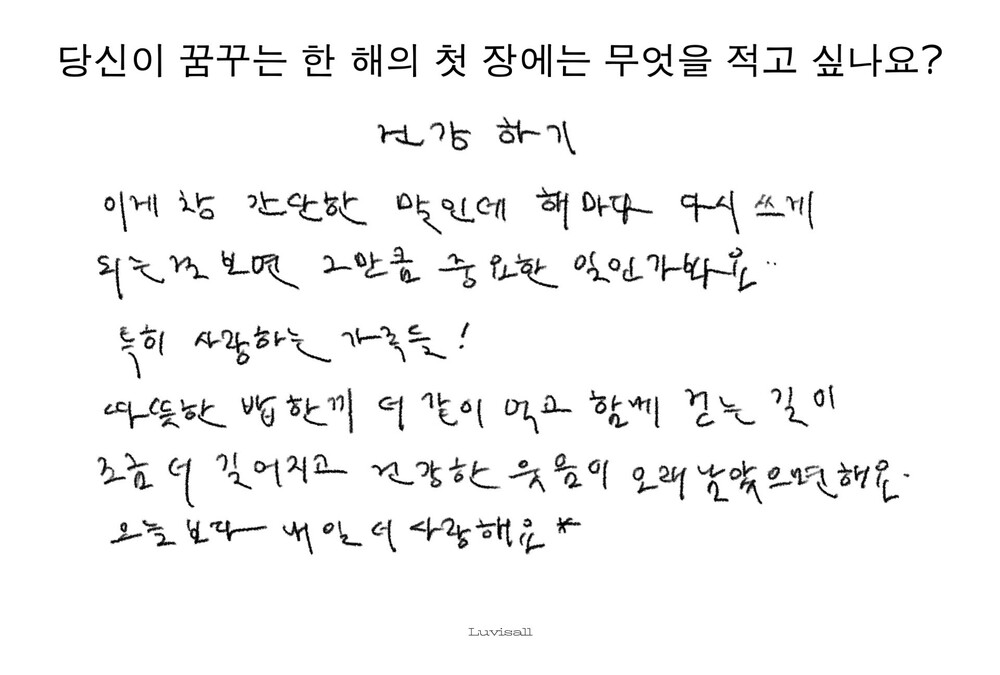 당신이 꿈꾸는 한 해의 첫 장에는 무엇을 적고 싶나요?
건강 하기
이게 참 간단한 말인데 해마다 다시 쓰게
되는걸 보면 그만큼 중요한 일인가봐요..
특히 사랑하는 가족들!
따뜻한 밥한끼 더 같이 먹고 함께 걷는 길이
조금 더 길어지고 건강한 웃음이 오래 남았으면해요.
오늘보다 내일 더 사랑해요*
Luvisall